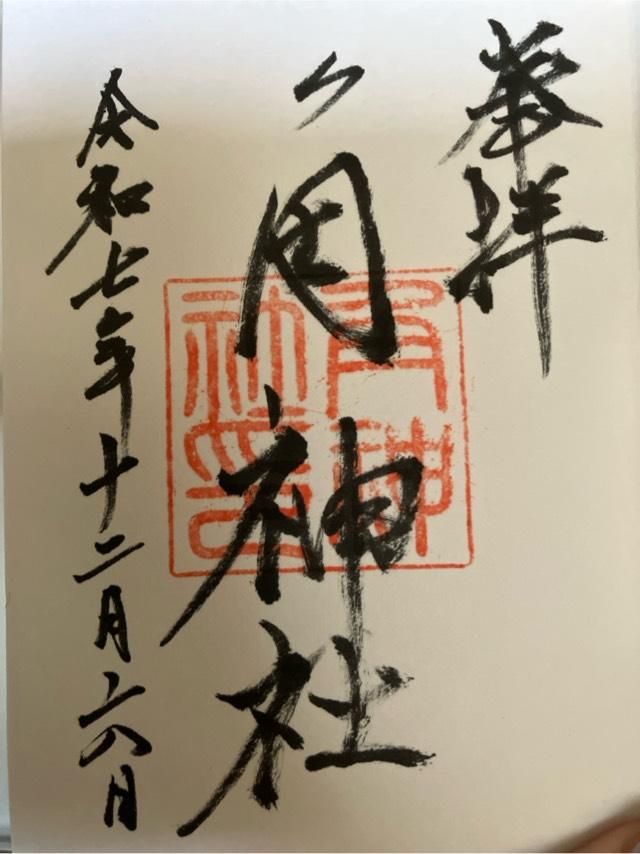 奉拝
角神社
令和七年十二月六日
角神
社印